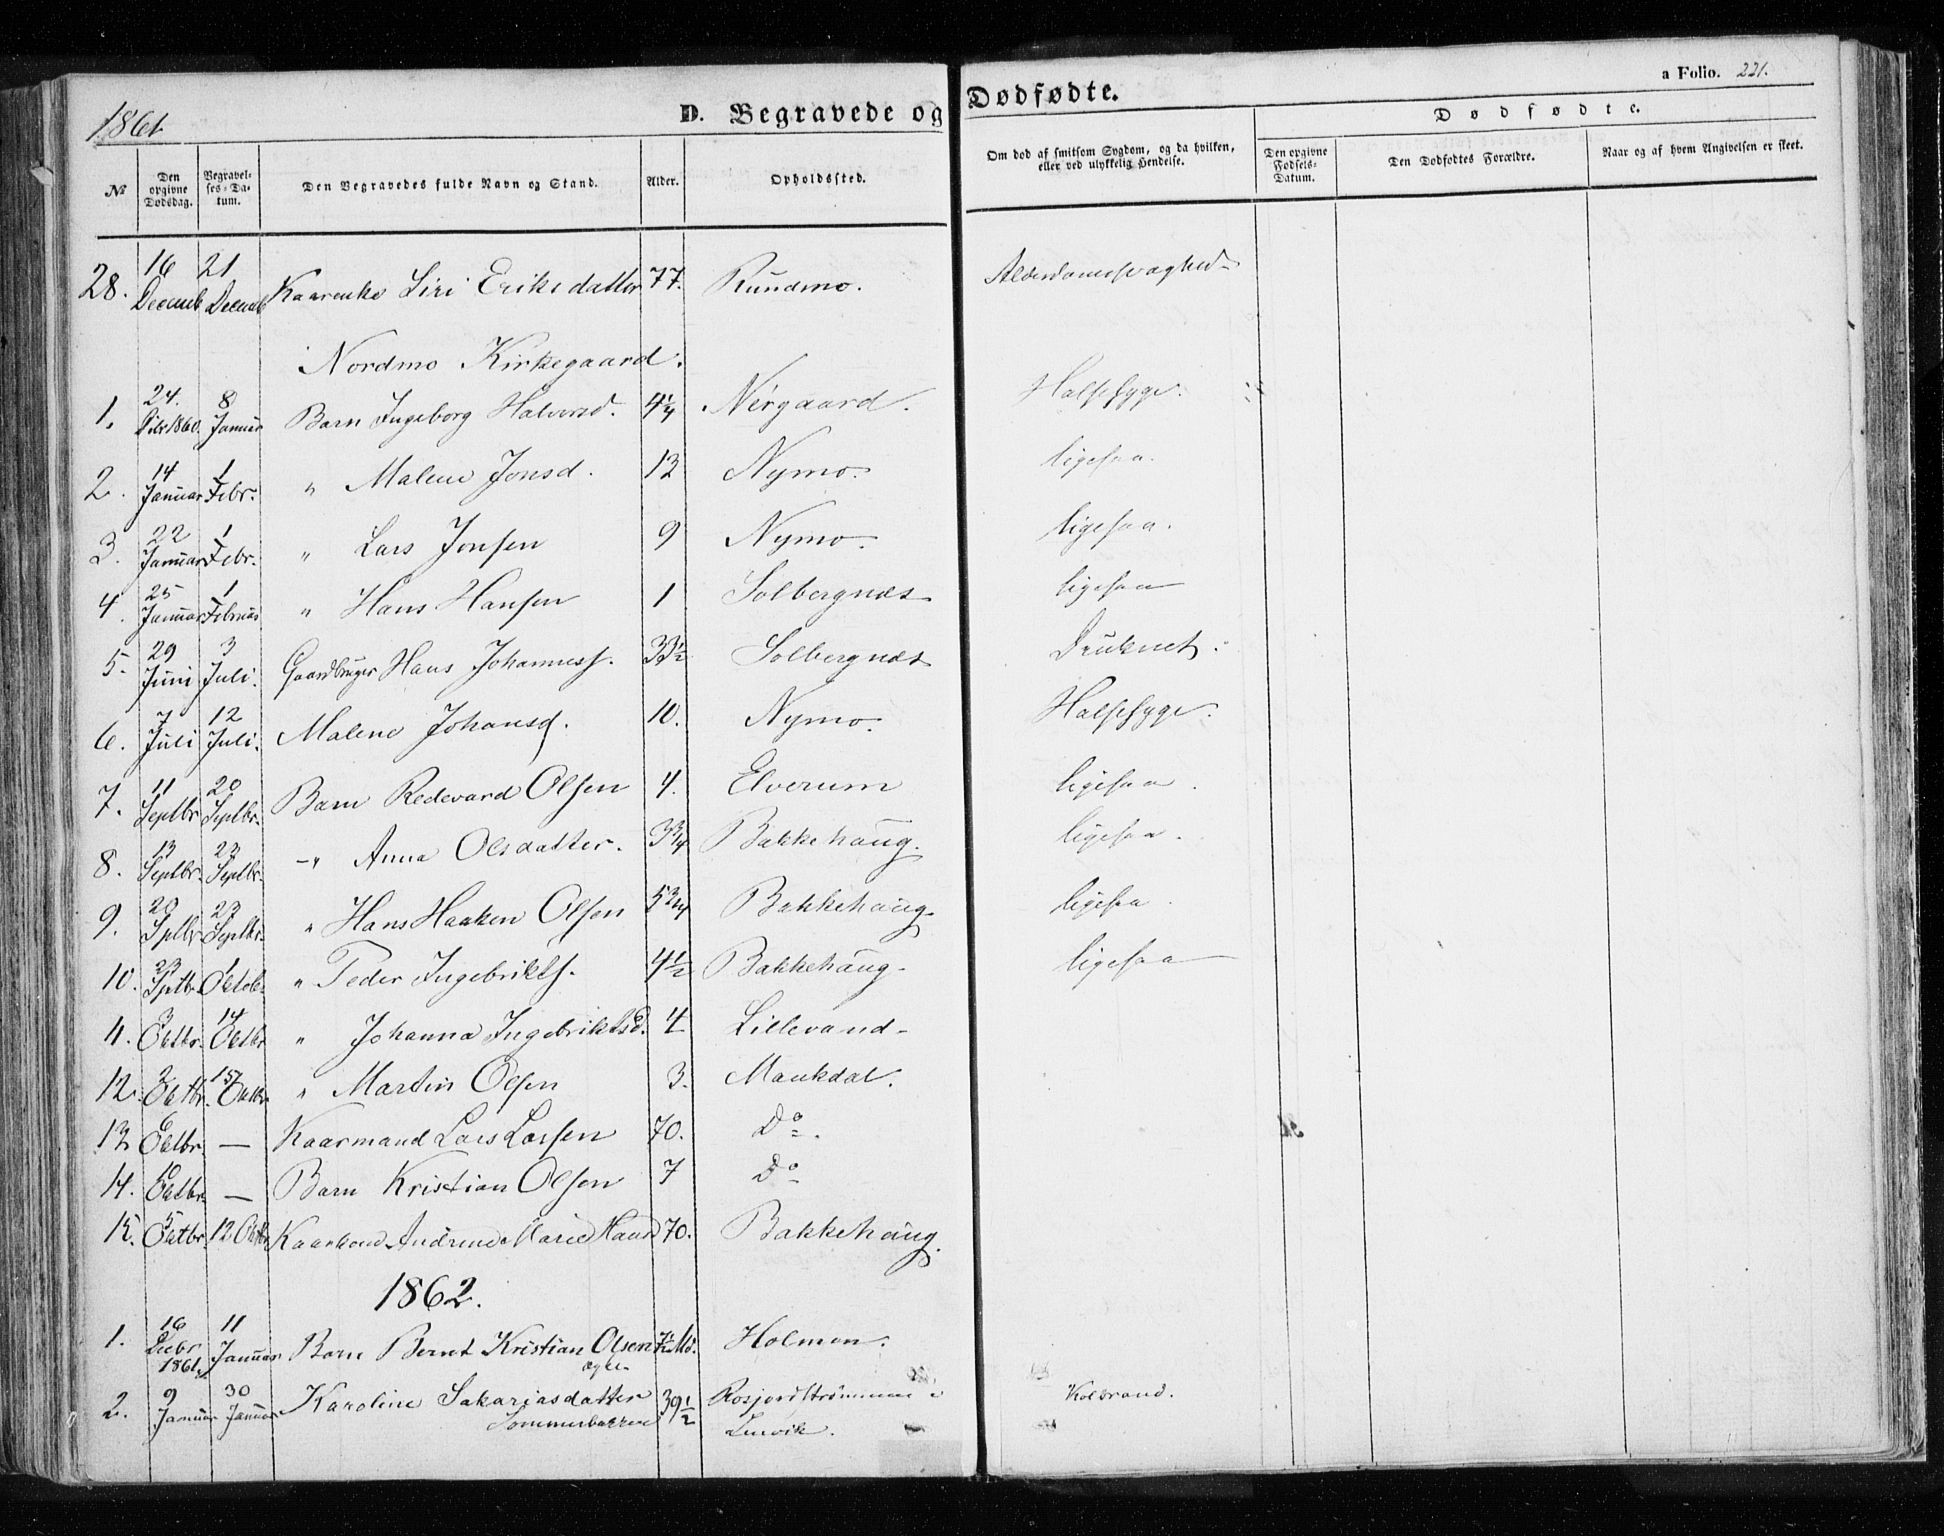 1861
D. Begravede og Dødfødte.
a Folio. 221.
№
Den opgivne Dødsdag.
Begravelses-Datum.
Den Begravedes fulde Navn og Stand.
Alder.
Opholdssted.
Om død af smitsom Sygdom, og da hvilken, eller ved ulykkelig Hendelse.
Dødfødte.
Den opgivne Fødsels-Datum.
Den Dødfødtes Forældre.
Naar og af hvem Angivelsen er skeet.
28. 16 Decemb 21 Decemb Kaarenke Siri Eriksdatter 77. Rundmo. Alderdomssvaghed
Nordmo Kirkegaard.
1. 24. Dcbr 1860. 8 Januar Barn Ingeborg Halvorsd. 4¼ Nergaard. Halssyge.
2. 14 Januar 1 Febr. " Malene Jonsd. 12 Nymo. ligesaa.
3. 22 Januar 1 Febr. " Lars Jonsen 9 Nymo. ligesaa.
4. 25 Januar 1 Februar " Hans Hansen 1 Solbergnæs ligesaa
5. 29 Juni 3 Juli. Gaardbruger Hans Johanness. 33½ Solbergnæs Druknet.
6. 7 Juli 12 Juli. Malene Johansd. 10. Nymo. Halssyge.
7. 11 Septbr 20 Septbr. Barn Redevard Olsen 4. Elverum ligesaa.
8. 13 Septbr. 23 Septbr. " Anna Olsdatter. 3¾ Bakkehaug. ligesaa.
9. 20 Sptbr 23 Septbr. " Hans Haaken Olsen 5¾ Bakkehaug. ligesaa.
10. 23 Sptbr. 1 Oktob. " Peder Ingebrikts. 4½ Bakkehaug. ligesaa
11. 3 Oktbr. 14 Oktbr " Johanna Ingebriktsd. 4 Lillevand
12. 2 Oktbr. 15 Oktbr. " Martin Olsen 3. Maukdal.
13 6 Oktbr. — Kaarmand Lars Larsen 70. Do.
14. 10 Oktbr. — Barn Kristian Olsen 7 Do
15. 5 Oktbr. 12 Oktbr Kaarkone Andrine Marie Hansd 70. Bakkehaug.
1862.
1. 16 Decbr 1861. 11 Januar Barn Bernt Kristian Olsen 7½ Mo. Holmen.
ægte
2. 9 Januar 30 Januar Karoline Sakariasdatter 39½ Rosjordstrømmen i
Sommerbakken Lenvik. Koldbrand.